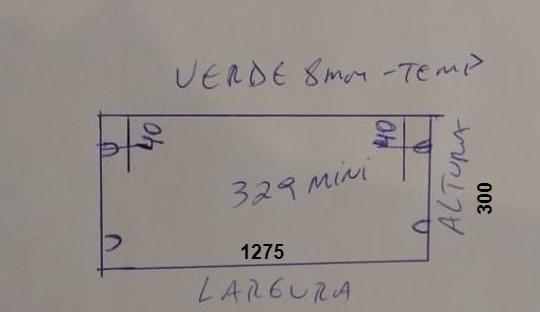 VERDE 8mm - TEMP
40 40
329 MINI
ALTURA
300
1275
LARGURA